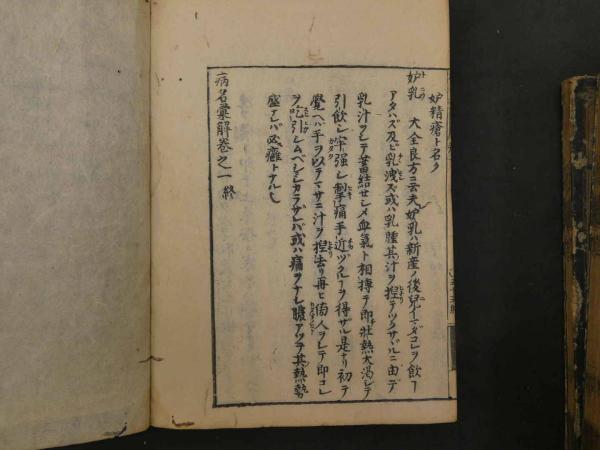 妒精瘡ト名ク
妒乳 大全良方ニ云夫妒乳ハ新産ノ後兒イマダコレヲ飲ー
アタハズ及ヒ乳洩ズ或ハ乳腫其汁ヲ捏テツクサヾルニ由テ
乳汁ヲシテ蓄結セシメ血氣ト相搏テ即壯熱大渇シテ
引飲シ牢強シ掣痛手近ヅクルーヲ得ザル是ナリ初テ
覺ヘバ手ヲ以テマサニ汁ヲ捏去リ再ヒ傍人ヲシテ即コレ
ヲ吮引シムベシシカラザレバ或ハ瘡ヲナシ膿アツテ其熱勢
盛ナレバ必癰トナル也
病名彙解卷之一終